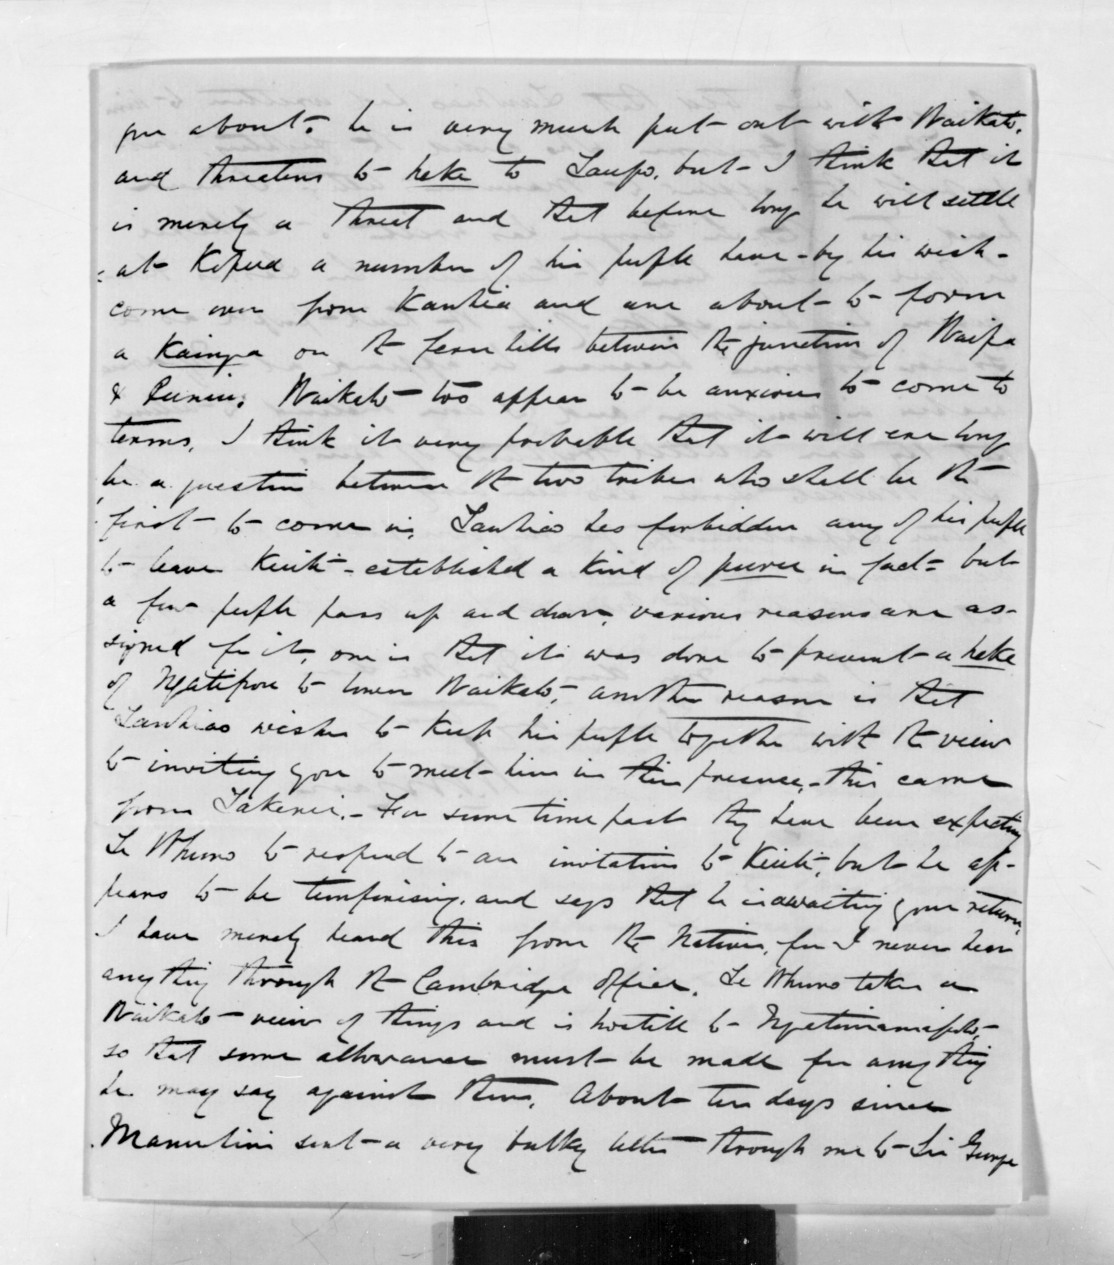 you about. he is very much put out with Waikato,
and threatens to heke to Taupo, but I think that it
is merely a threat and that before long he will settle
at Kopua a number of his people have - by his wish -
come over from Kawhia and are about to form
a Kainga on the fern hills between the junction of Waipa
& Puniu. Waikato too appear to be anxious to come to
terms, I think it very probable that it will ere long
be a question between the two tribes who shall be the
first to come in, Tawhiao has forbidden any of his people
to leave Kuiti - established a kind of puru in fact - but
a few people pass up and down, various reasons are as-
signed for it, one is that it was done to prevent a heke
of Ngatipou to lower Waikato, another reason is that
Tawhiao wishes to keep his people together with the view
to inviting you to meet him in their presence, - this came
from Takerei. - For some time past they have been expecting
Te Whuno to respond to an invitation to Kuiti, but he ap-
pears to be temporising, and says that he is awaiting your return,
I have merely heard this from the Natives, for I never hear
anything through the Cambridge Office. Te Whuno takes a
Waikato view of things and is hostile to Ngatimaniapoto
so that some allowance must be made for anything
he may say against them. About ten days since
Manuhiri sent a very bulky letter through me to Sir George